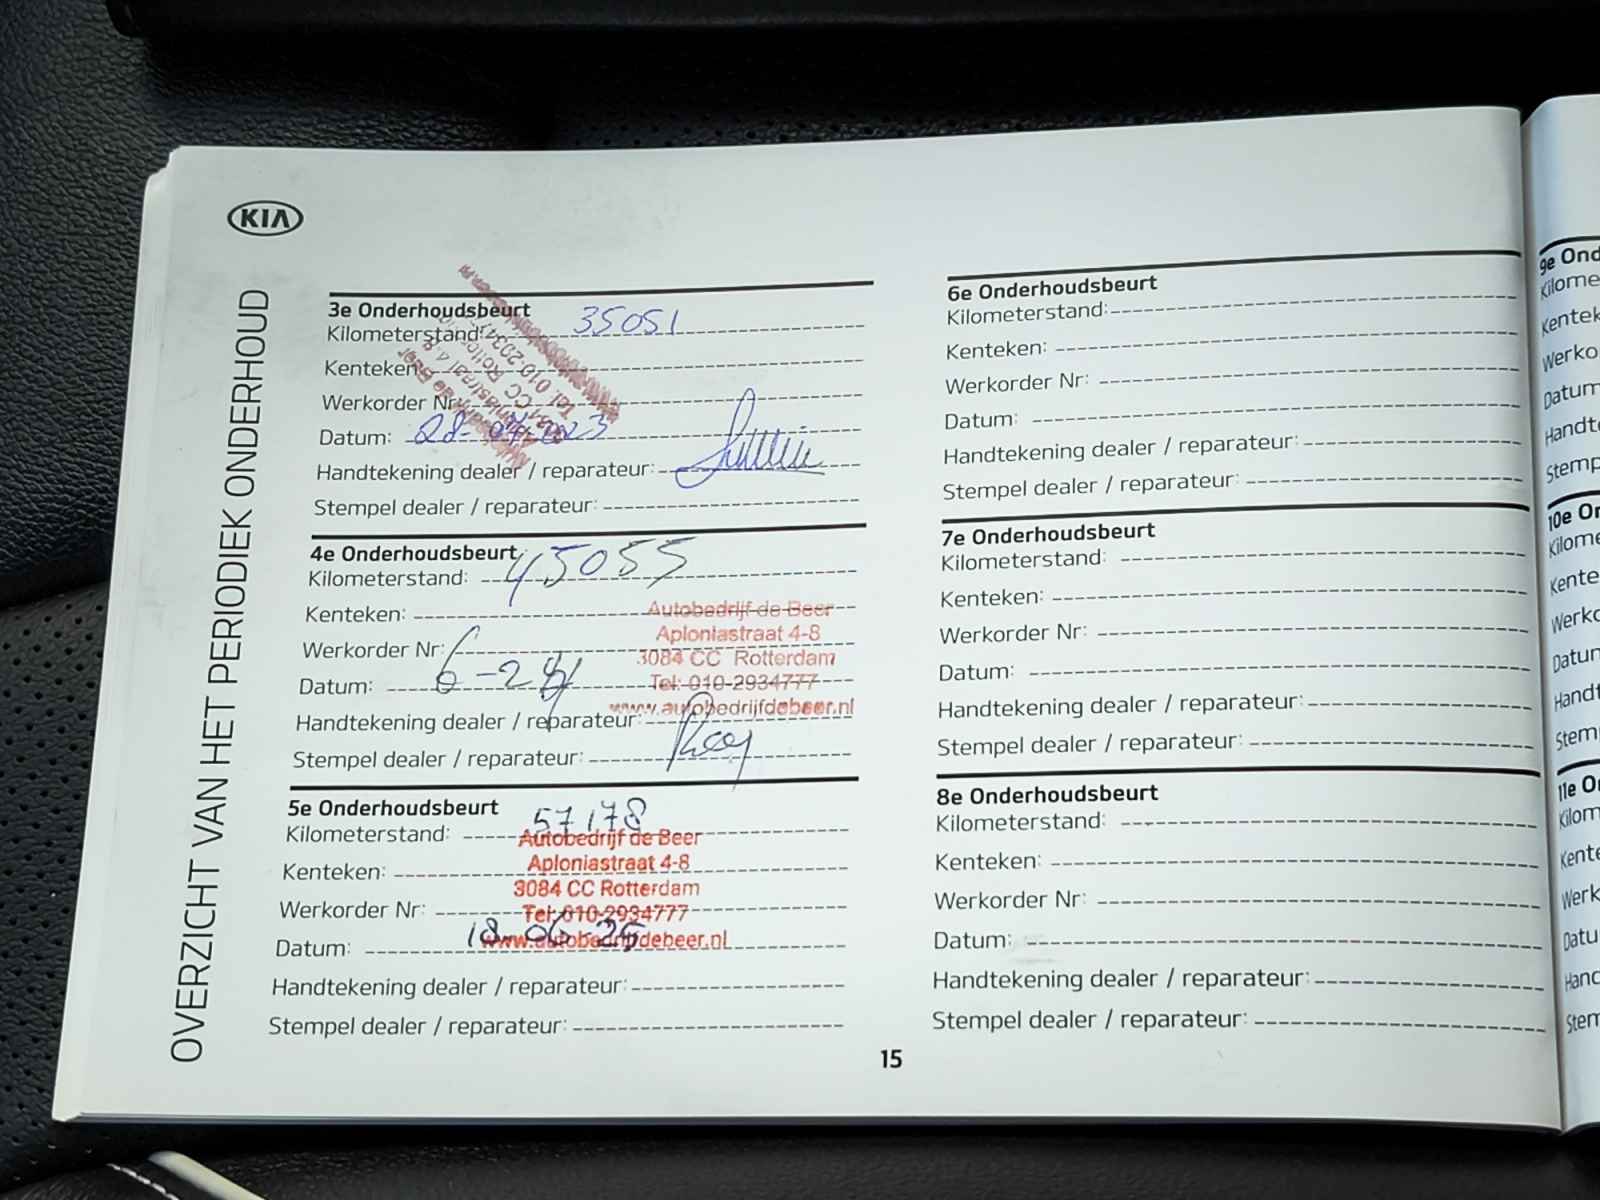 KIA
OVERZICHT VAN HET PERIODIEK ONDERHOUD
3e Onderhoudsbeurt
Kilometerstand: 35051
Kenteken:
Werkorder Nr:
Datum: 28-
Handtekening dealer / reparateur:
Stempel dealer / reparateur:
4e Onderhoudsbeurt
Kilometerstand: 45055
Kenteken:
Autobedrijf de Beer
Aploniastraat 4-8
Werkorder Nr:
3084 CC Rotterdam
Datum: 6-24
Tel: 010-2934777
www.autobedrijfdebeer.nl
Handtekening dealer / reparateur:
Stempel dealer / reparateur:
5e Onderhoudsbeurt
Kilometerstand: 57178
Autobedrijf de Beer
Aploniastraat 4-8
Kenteken:
3084 CC Rotterdam
Werkorder Nr:
Tel: 010-2934777
Datum: 18-06-25
www.autobedrijfdebeer.nl
Handtekening dealer / reparateur:
Stempel dealer / reparateur:
6e Onderhoudsbeurt
Kilometerstand:
Kenteken:
Werkorder Nr:
Datum:
Handtekening dealer / reparateur:
Stempel dealer / reparateur:
7e Onderhoudsbeurt
Kilometerstand:
Kenteken:
Werkorder Nr:
Datum:
Handtekening dealer / reparateur:
Stempel dealer / reparateur:
8e Onderhoudsbeurt
Kilometerstand:
Kenteken:
Werkorder Nr:
Datum:
Handtekening dealer / reparateur:
Stempel dealer / reparateur:
15
9e Ond
Kilome
Kentek
Werko
Datum
Handte
Stemp
10e On
Kilome
Kente
Werko
Datun
Handt
Stem
11e O
Kilom
Kente
Werk
Datu
Hand
Sten